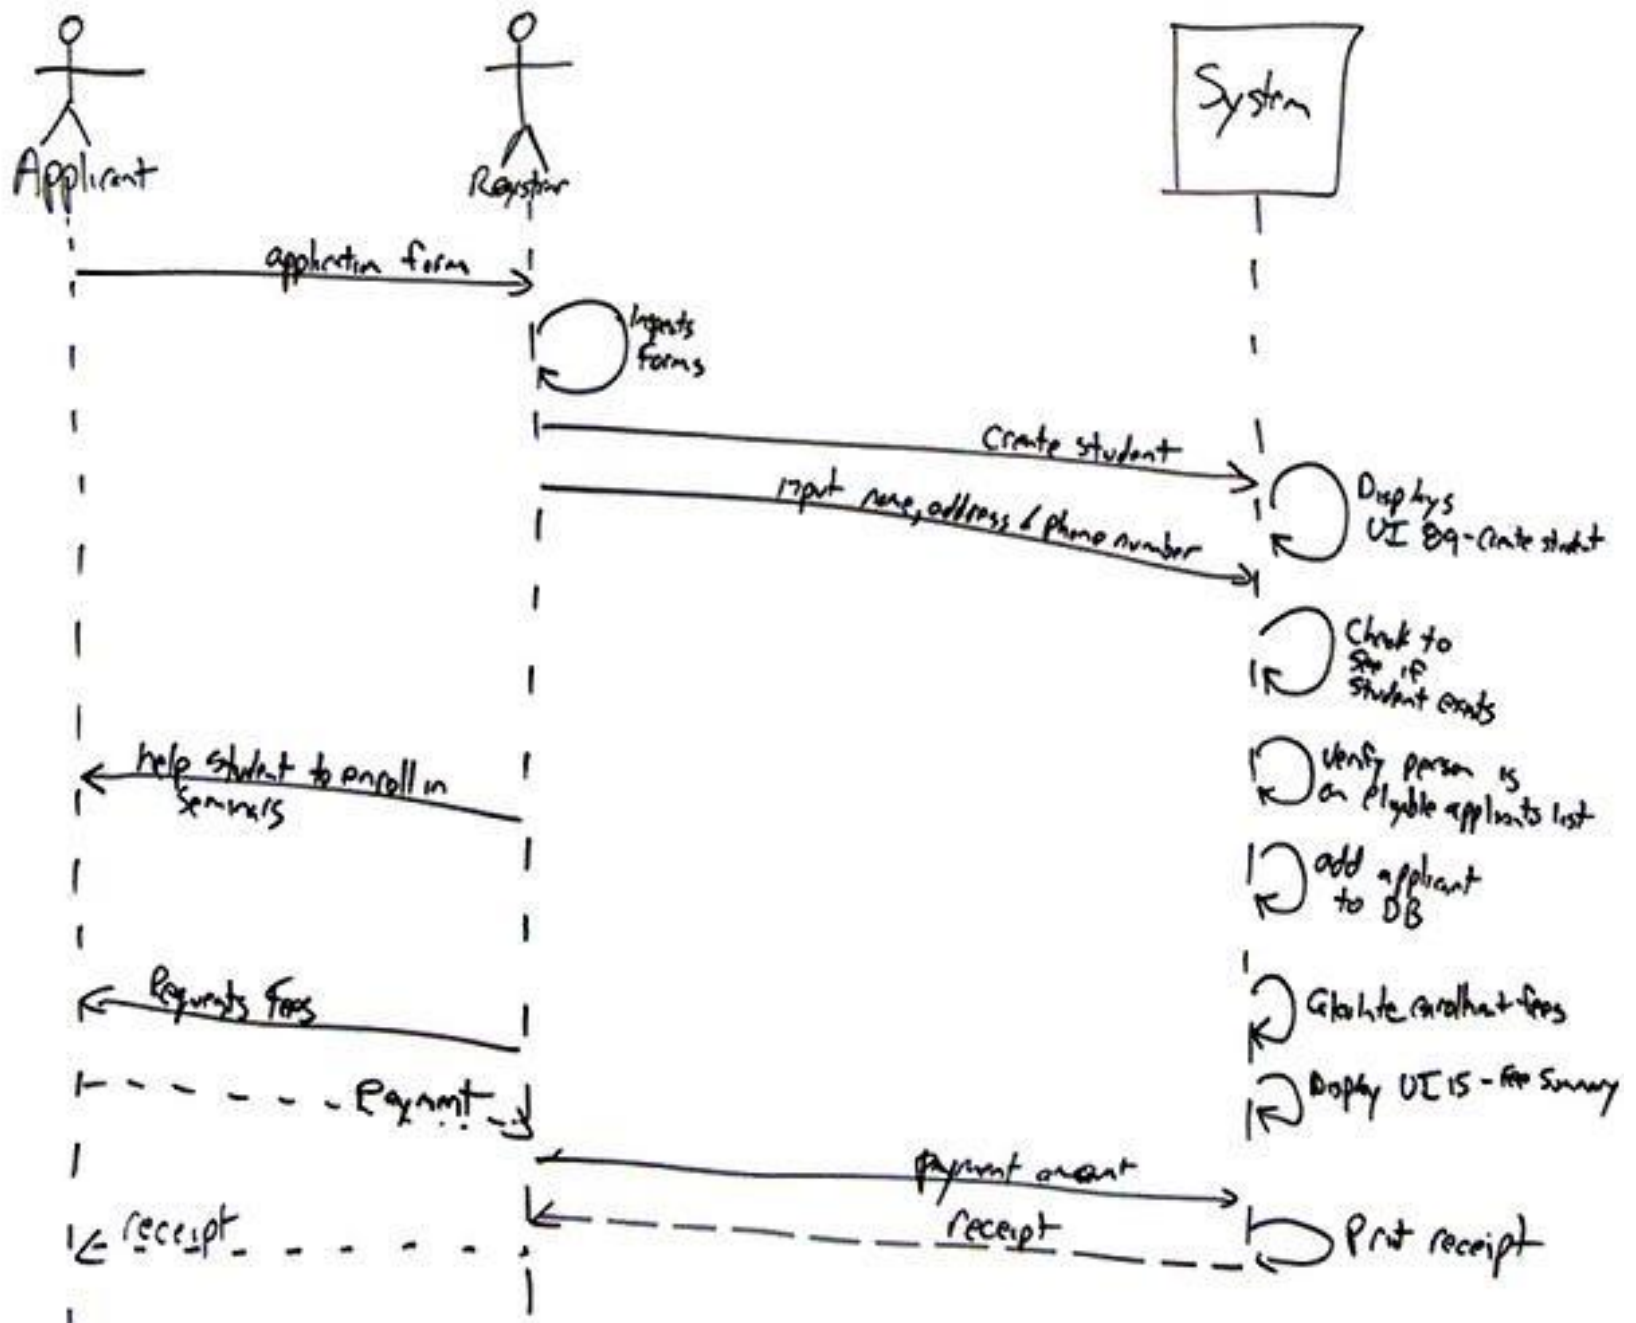 Applicant
Registrar
System
application form
Inspects
forms
Create student
input name, address & phone number
Displays
UI 89 - Create student
Check to
see if
student exists
help student to enroll in
seminars
Verify person is
on eligible applicants list
add applicant
to DB
Requests fees
Calculate enrollment fees
Display UI 15 - fee summary
Payment
payment amount
receipt
receipt
Print receipt